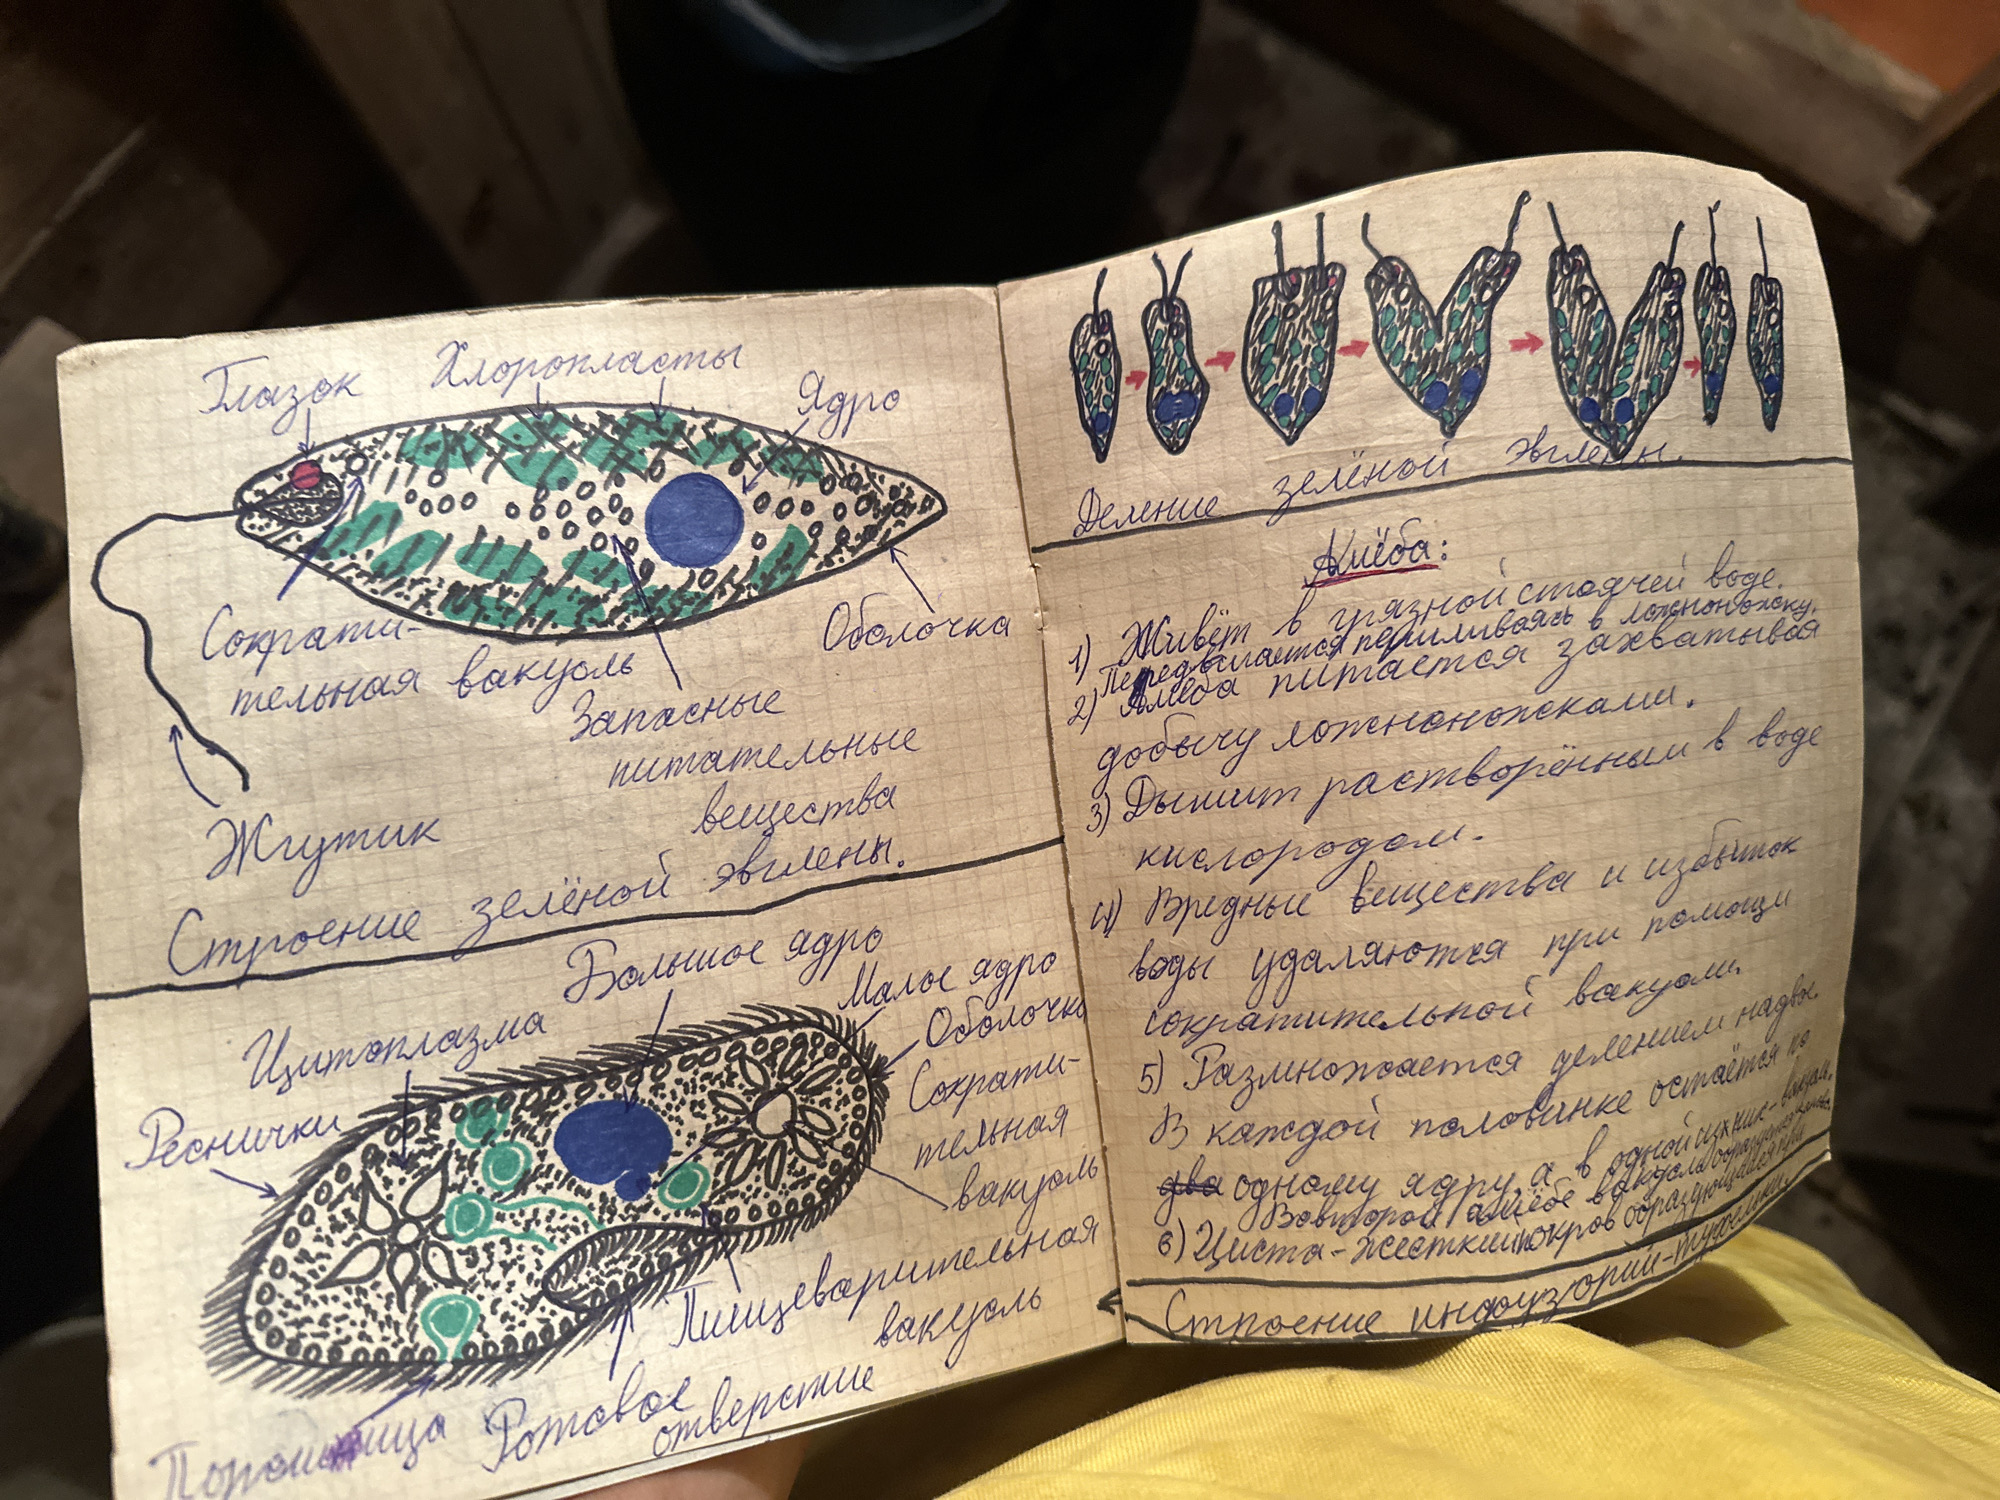 Глазок
Хлоропласты
Ядро
Сократи-
тельная вакуоль
Запасные
питательные
вещества
Оболочка
Жгутик
Строение зелёной эвглены.
Большое ядро
Малое ядро
Оболочка
Цитоплазма
Реснички
Сократи-
тельная
вакуоль
Пищеварительная
вакуоль
Ротовое
отверстие
Порошица
Деление зелёной эвглены.
Амёба:
1) Живёт в грязной стоячей воде.
Передвигается переливаясь в ложноножку.
2) Амёба питается захватывая
добычу ложноножками.
3) Дышит растворённым в воде
кислородом.
4) Вредные вещества и избыток
воды удаляются при помощи
сократительной вакуоли.
5) Размножается делением надвое.
В каждой половинке остаётся по
два одному ядру а в одной из них - вакуоль.
Во второй амёбе вакуоль
6) Циста - жесткий покров образующийся при
Строение инфузории-туфельки.